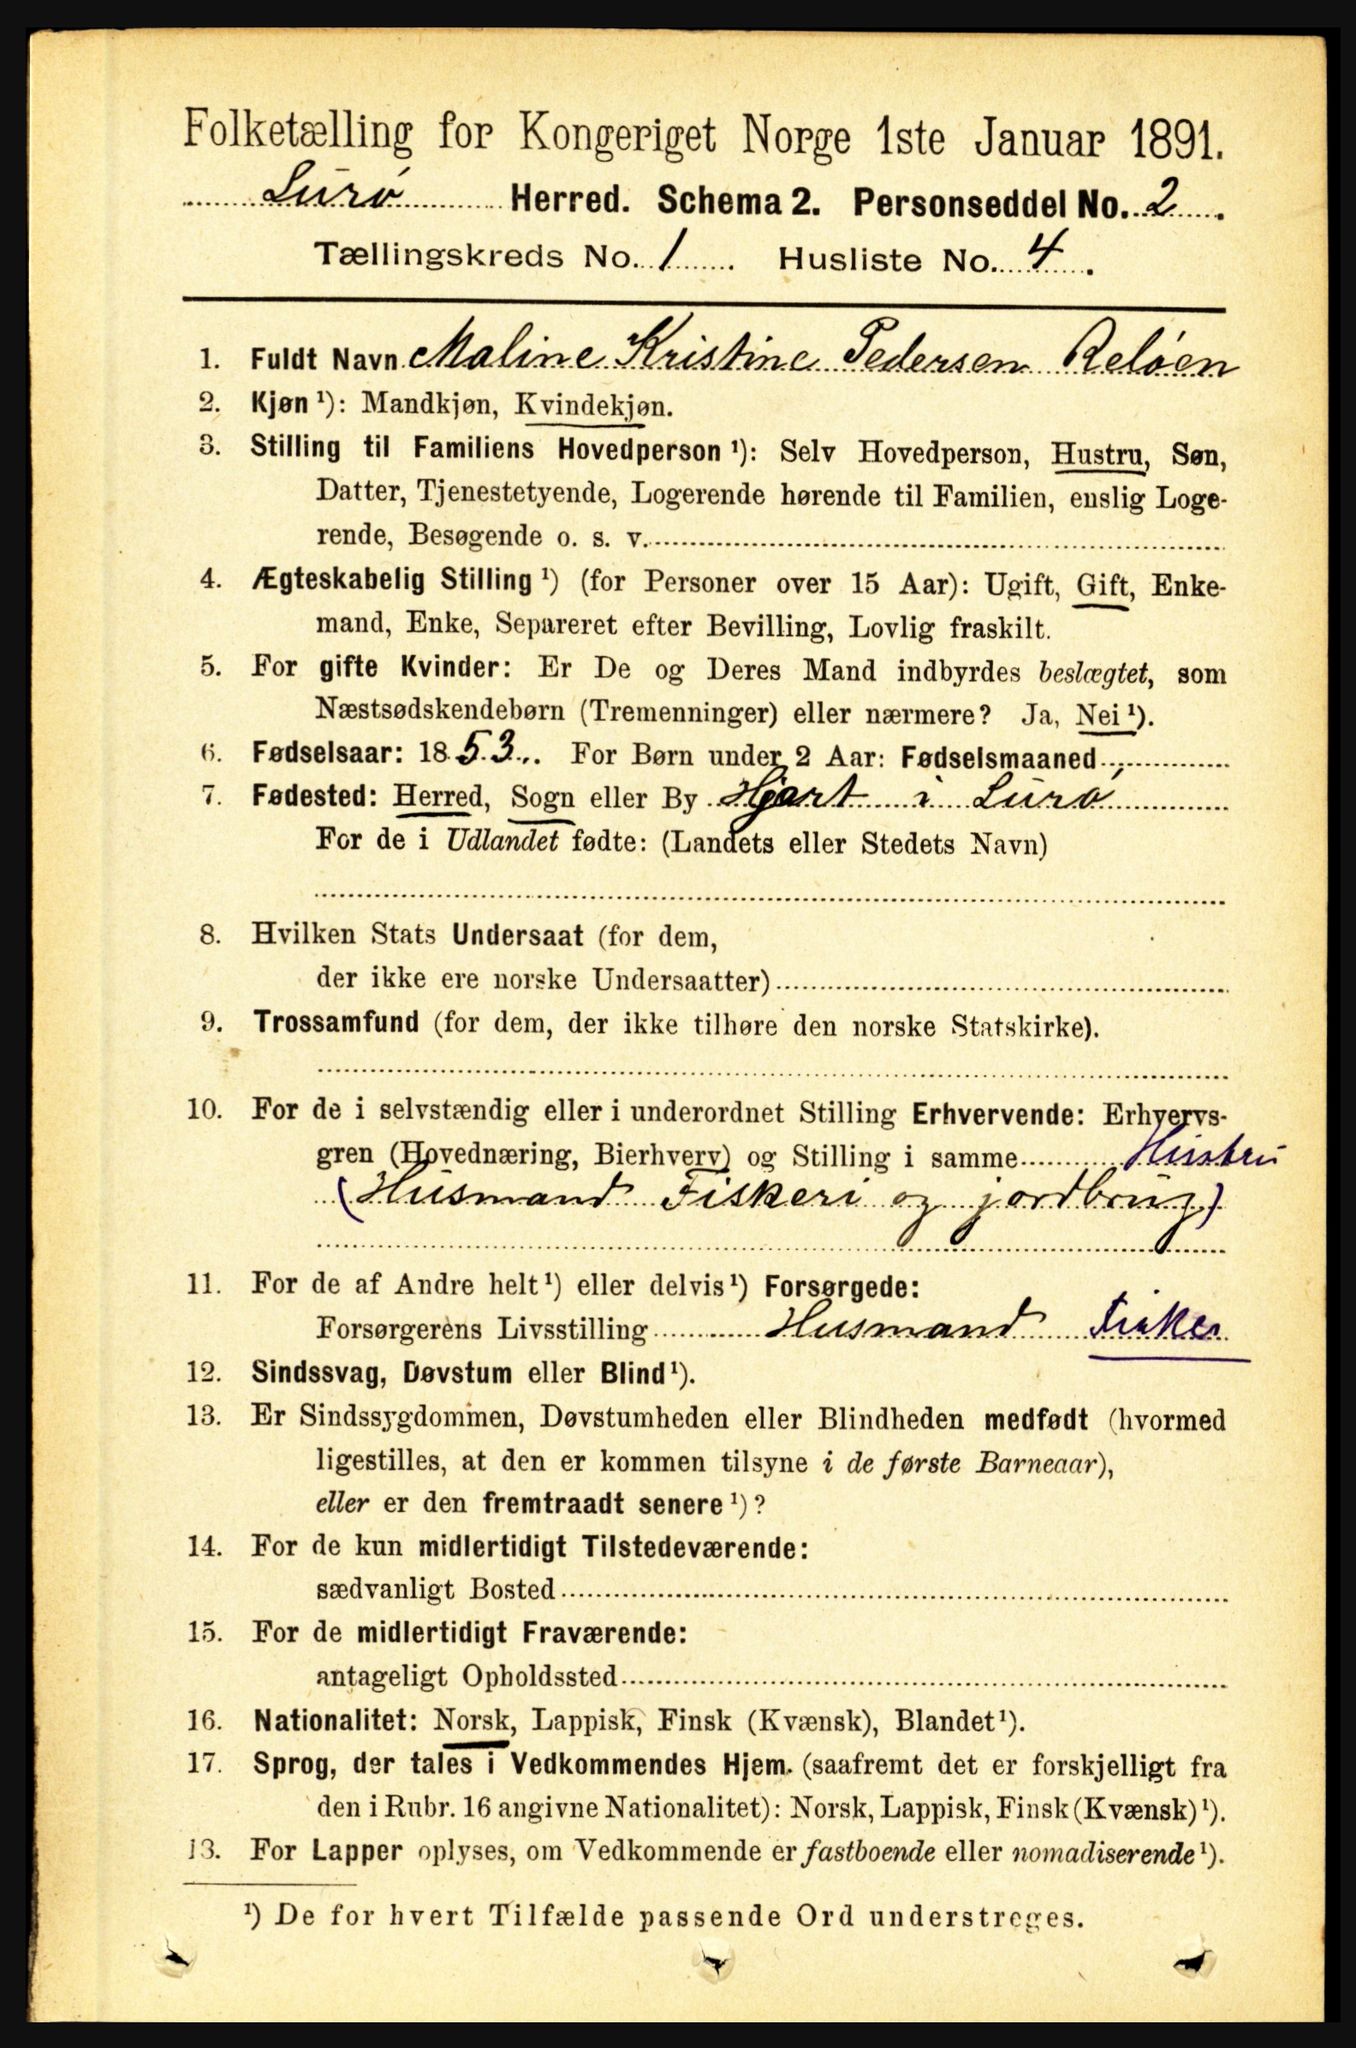 Folketælling for Kongeriget Norge 1ste Januar 1891.
Lurø Herred. Schema 2. Personseddel No. 2.
Tællingskreds No. 1 Husliste No. 4.
1. Fuldt Navn Maline Kristine Pedersen Reløen
2. Kjøn ¹): Mandkjøn, Kvindekjøn.
3. Stilling til Familiens Hovedperson ¹): Selv Hovedperson, Hustru, Søn,
Datter, Tjenestetyende, Logerende hørende til Familien, enslig Loge-
rende, Besøgende o. s. v.
4. Ægteskabelig Stilling ¹) (for Personer over 15 Aar): Ugift, Gift, Enke-
mand, Enke, Separeret efter Bevilling, Lovlig fraskilt.
5. For gifte Kvinder: Er De og Deres Mand indbyrdes beslægtet, som
Næstsødskendebørn (Tremenninger) eller nærmere? Ja, Nei ¹).
6. Fødselsaar: 1853. For Børn under 2 Aar: Fødselsmaaned
7. Fødested: Herred, Sogn eller By Hjart i Lurø
For de i Udlandet fødte: (Landets eller Stedets Navn)
8. Hvilken Stats Undersaat (for dem,
der ikke ere norske Undersaatter)
9. Trossamfund (for dem, der ikke tilhøre den norske Statskirke).
10. For de i selvstændig eller i underordnet Stilling Erhvervende: Erhvervs-
gren (Hovednæring, Bierhverv) og Stilling i samme Hustru
(Husmand Fiskeri og jordbrug)
11. For de af Andre helt ¹) eller delvis ¹) Forsørgede:
Forsørgerens Livsstilling Husmand Fisker
12. Sindssvag, Døvstum eller Blind ¹).
13. Er Sindssygdommen, Døvstumheden eller Blindheden medfødt (hvormed
ligestilles, at den er kommen tilsyne i de første Barneaar),
eller er den fremtraadt senere ¹)?
14. For de kun midlertidigt Tilstedeværende:
sædvanligt Bosted
15. For de midlertidigt Fraværende:
antageligt Opholdssted
16. Nationalitet: Norsk, Lappisk, Finsk (Kvænsk), Blandet ¹).
17. Sprog, der tales i Vedkommendes Hjem. (saafremt det er forskjelligt fra
den i Rubr. 16 angivne Nationalitet): Norsk, Lappisk, Finsk (Kvænsk) ¹).
13. For Lapper oplyses, om Vedkommende er fastboende eller nomadiserende ¹).
¹) De for hvert Tilfælde passende Ord understreges.